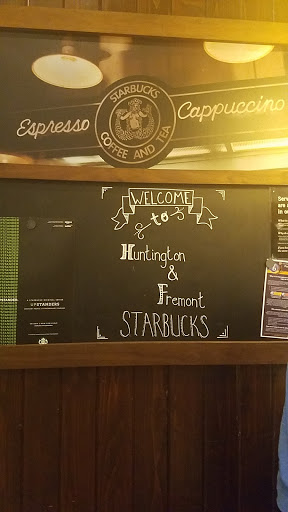 STARBUCKS
Espresso
Cappuccino
COFFEE AND TEA
WELCOME
to
Huntington
&
Fremont
STARBUCKS
UPSTANDERS